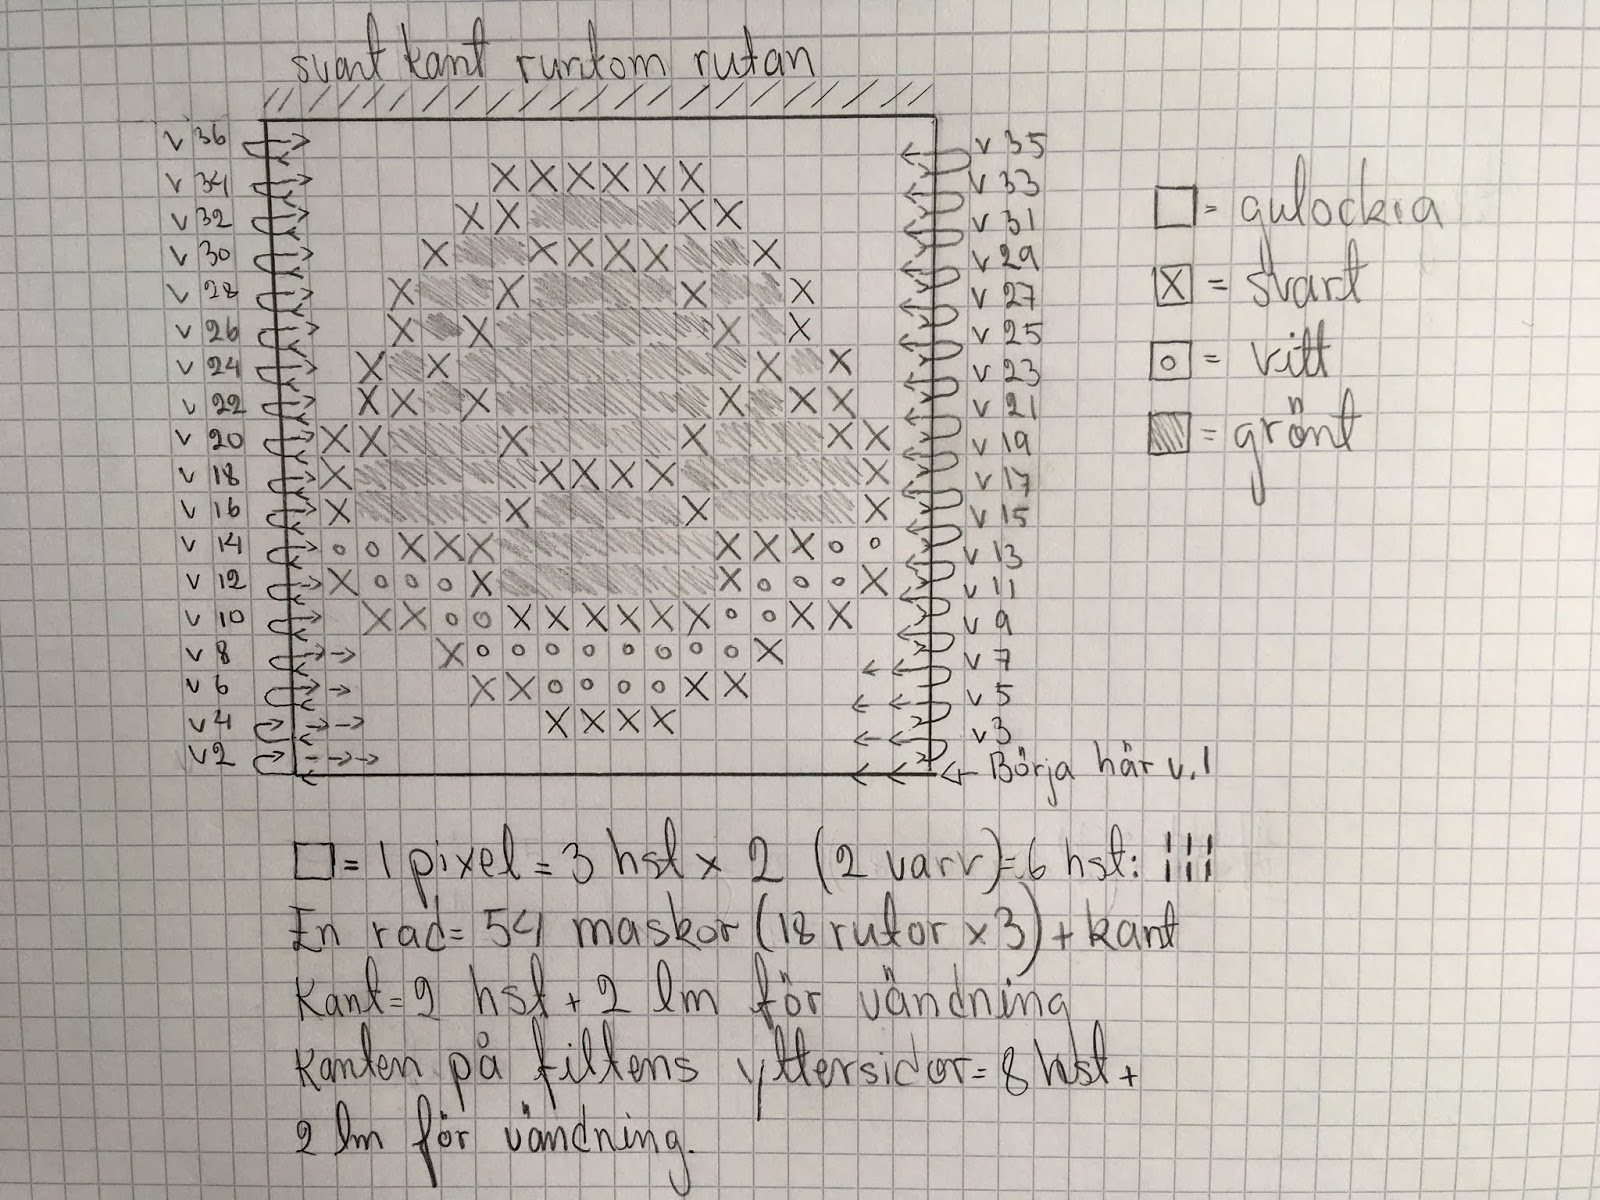 svart kant runtom rutan
v 36 v 35
v 34 v 33
v 32 v 31
v 30 v 29
v 28 v 27
v 26 v 25
v 24 v 23
v 22 v 21
v 20 v 19
v 18 v 17
v 16 v 15
v 14 v 13
v 12 v 11
v 10 v 9
v 8 v 7
v 6 v 5
v 4 v 3
v 2 ← Börja här v. 1
□ = gulockra
X = svart
o = vitt
= grönt
□ = 1 pixel = 3 hst x 2 (2 varv) = 6 hst:
En rad = 54 maskor (18 rutor x 3) + kant
Kant = 2 hst + 2 lm för vändning
Kanten på filtens yttersidor = 8 hst +
2 lm för vändning.